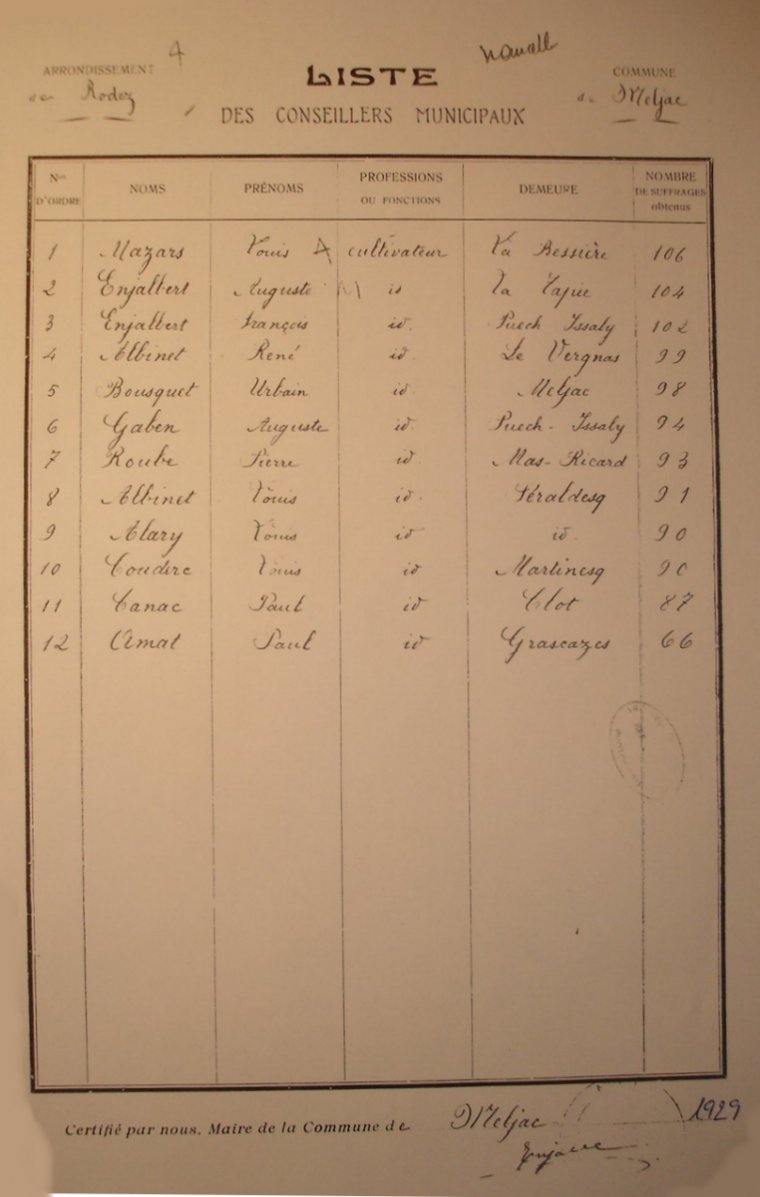 4
ARRONDISSEMENT
de Rodez
LISTE
DES CONSEILLERS MUNICIPAUX
COMMUNE
de Meljac
Nos D'ORDRE NOMS PRÉNOMS PROFESSIONS OU FONCTIONS DEMEURE NOMBRE DE SUFFRAGES obtenus
1 Mazars Louis A cultivateur La Bessière 106
2 Enjalbert Auguste M id La Tapie 104
3 Enjalbert François id. Puech Issaly 102
4 Albinet René id. Le Vergnas 99
5 Bousquet Urbain id. Meljac 98
6 Gaben Auguste id. Puech-Issaly 94
7 Roube Pierre id. Mas-Ricard 93
8 Albinet Louis id. Féraldesq 91
9 Alary Louis id id. 90
10 Couderc Louis id Martinesq 90
11 Canac Paul id Clot 87
12 Amat Paul id Grascazes 66
Certifié par nous, Maire de la Commune de Meljac
1929